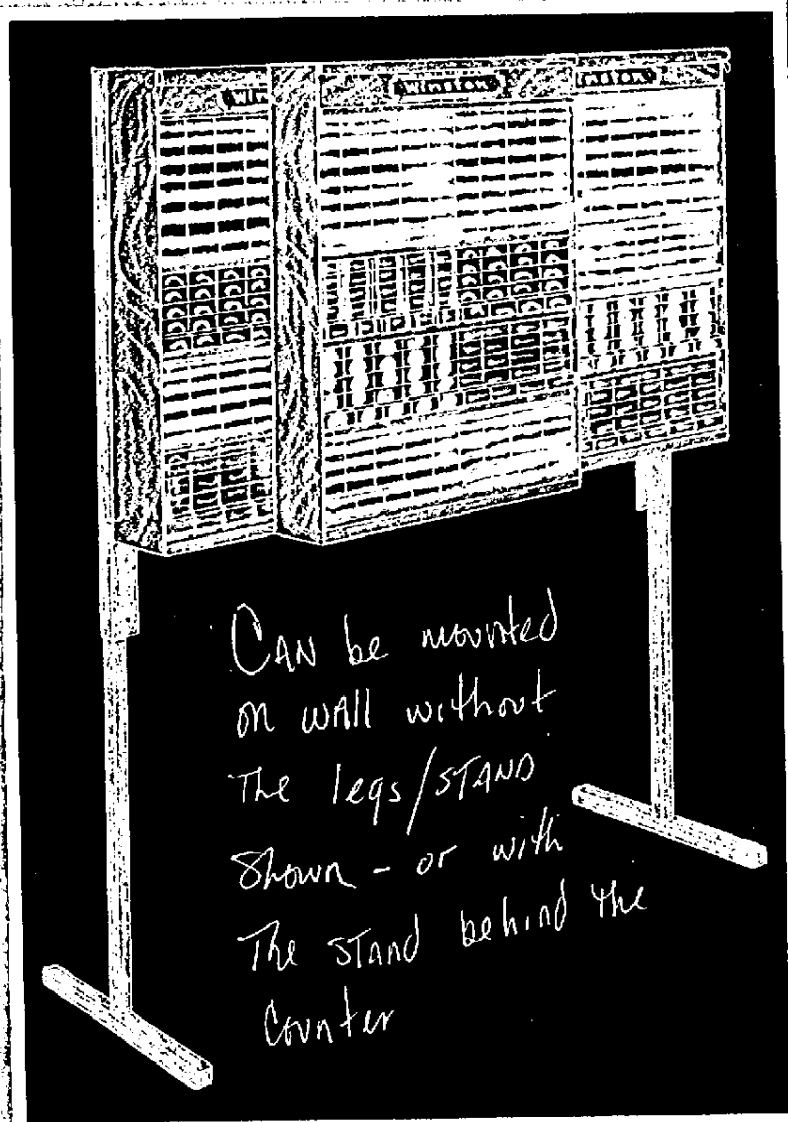 Win
Winston
inston
CAN be mounted
on wAll without
The legs/STAND
Shown - or with
The STAnd behind the
Counter